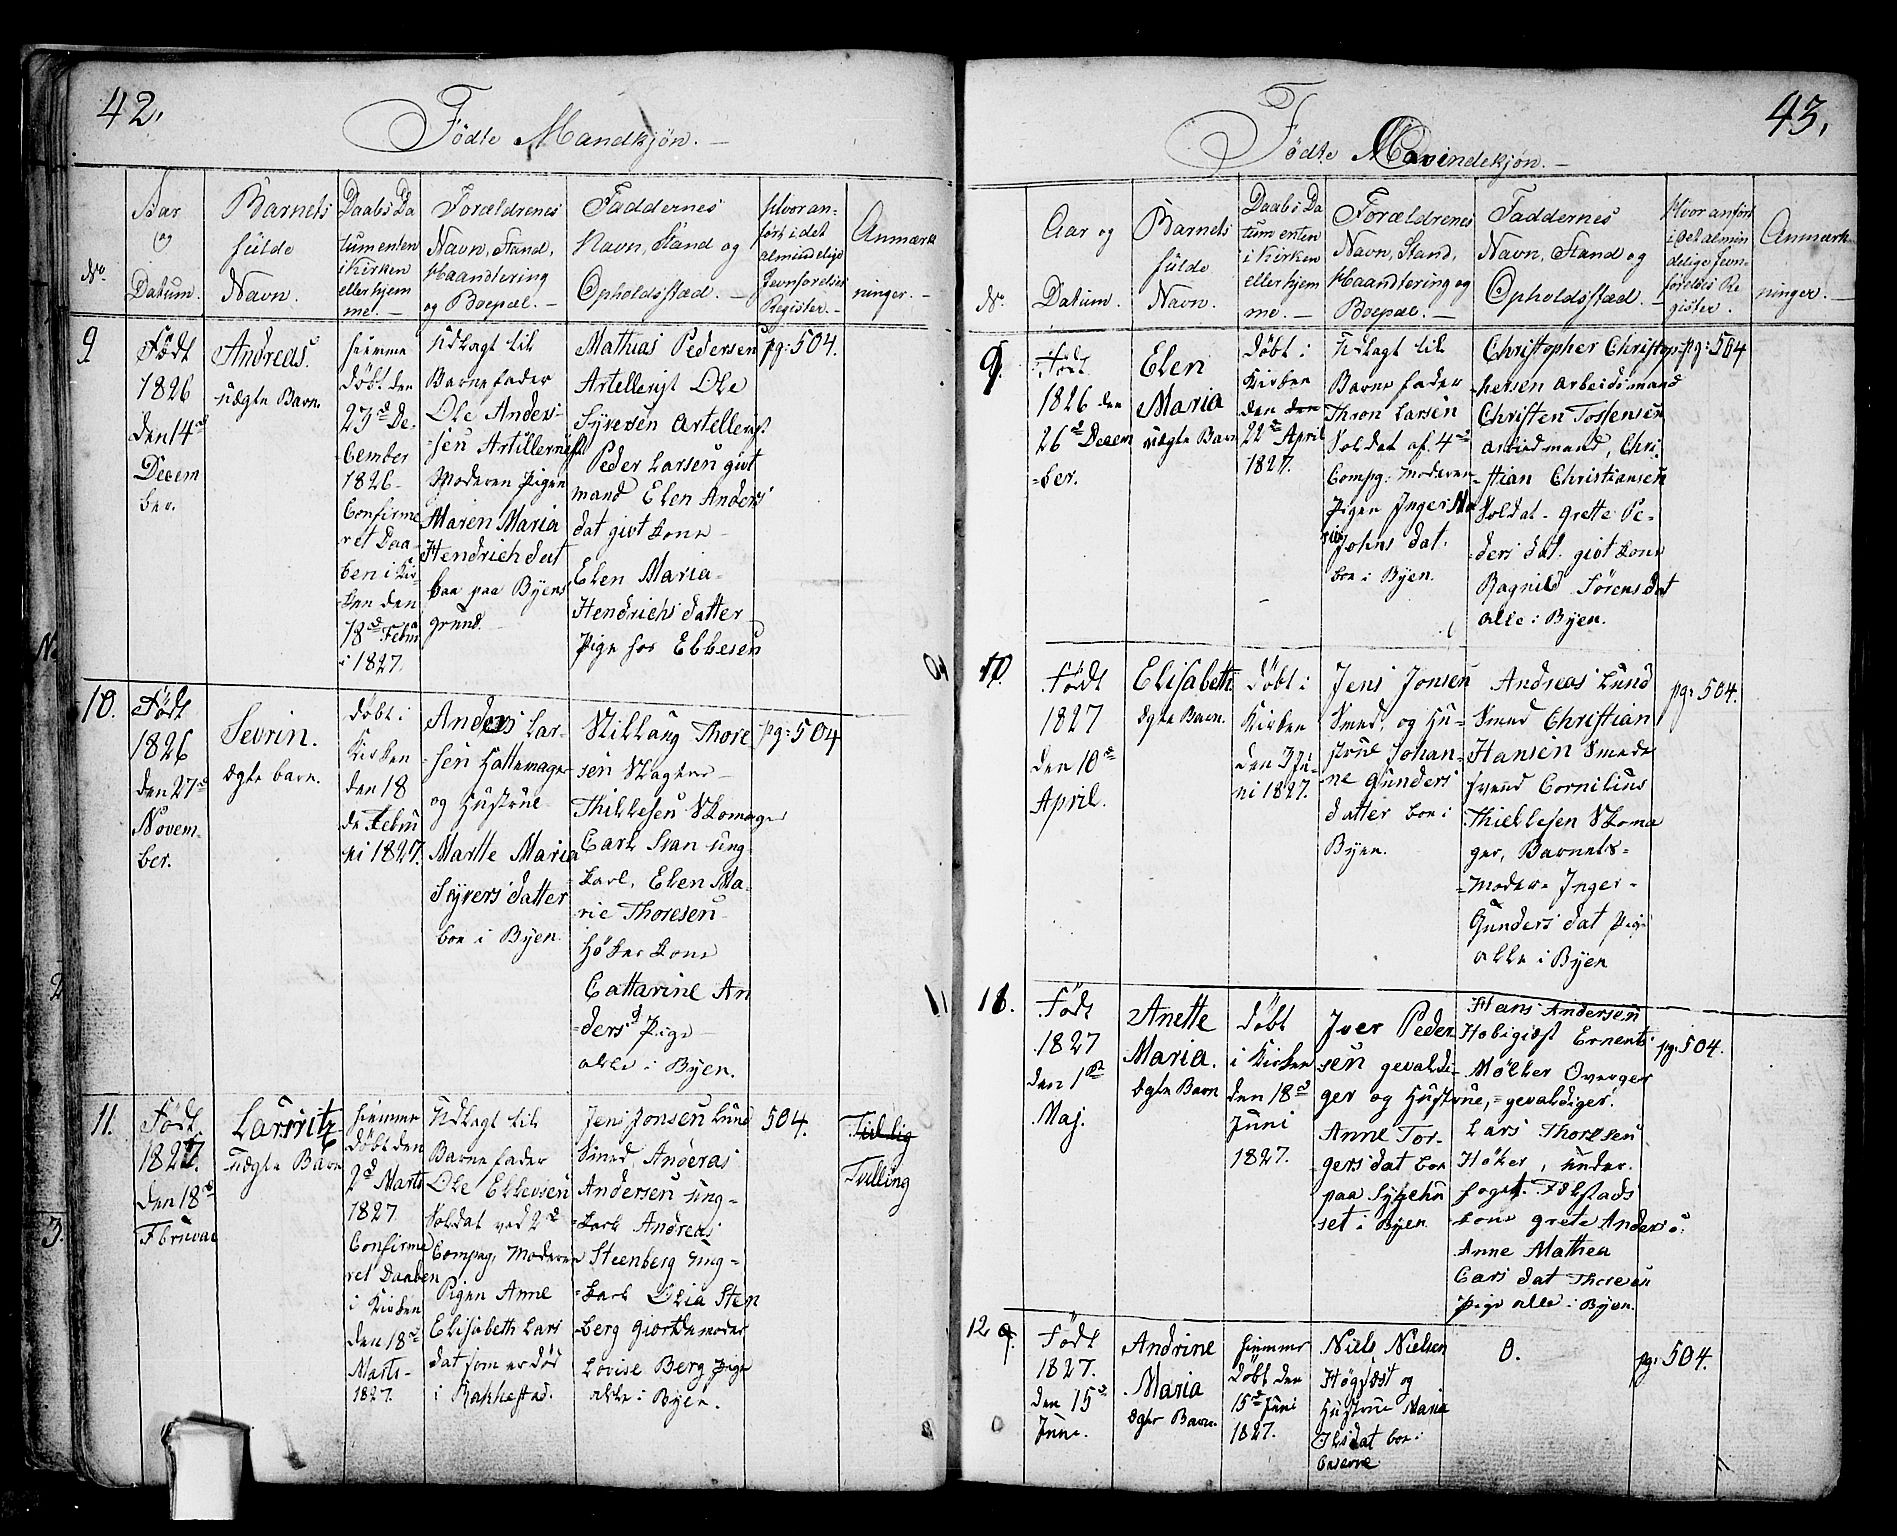 42.
Födte Mandkjøn. —
No.
Aar
og
Datum.
Barnets
fulde
Navn.
Daabs Da
tum enten
i Kirken
eller hjem
me. —
Forældrenes
Navn, Stand,
Haandtering
og Boepæl. —
Faddernes
Navn, Stand og
Opholdsstæd. —
Hvor an-
ført i det
almindelige
Jevnførelses
Register. -
Anmærk
ninger. -
9
Født
1826
den 14d
Decem
ber.
Andreas.
uægte Barn.
hiemme
døbt den
23d De-
cember
1826-
Confirme
ret Daa-
ben i Kir-
ken den
18d Febru
i 1827.
Udlagt til
Barnefader
Ole Anders-
-sen Artillerist
Moderen Pigen
Maren Maria
Hendrichdat
boe paa Byens
grund.
Mathias Pedersen
Artellerist Ole
Syversen Artellerist
Peder Larsen givt
mand Elen Anders
dat givt kone -
Elen Maria-
Hendrichsdatter
Pige hos Ebbesen
pg: 504.
10.
Født
1826
den 27d
Novem-
ber.
Sevrin.
ægte barn.
Døbt i
Kirken
den 18
de Febru
ni 1827.
Anders Lar-
-sen Hattemager
og Hustrue
Marthe Maria
Syversdatter
boe i Byen.
Thore
sen Slagter -
Thillesen Skomager
Carl Svan ung-
karl, Elen Ma-
rie Thoresen
Höker kone
Cattarine An
dersd Pige -
alle i Byen.
pg: 504
11.
Født
1827.
den 18d
Februar
Laurritz
uægte Barn
hiemme
døbt den
2d Marts
1827.
Confirme
ret Daaben
i Kirken
den 18d
Marts-
1827.
Udlagt til
Barnefader
Ole Ellevsen
Soldat ved 2d
Compag, Moderen
Pigen Anne
Elisabeth Lars
dat som er død
i Rakkestad.
Jens Jonsen Lund
Smed, Anderas
Andersen ung-
-karl Andreas
Steenberg ung-
-karl Olia Sten
berg Giordemoder
Lovise Berg Pige
alle i Byen.
504.
Tvilling
43.
Födte Qvindekjøn. —
No.
Aar og
Datum.
Barnets
fulde
Navn.
Daabs Da
tum enten
i Kirken
eller hjem
me. —
Forældrenes
Navn, Stand,
Haandtering og
Boepæl. —
Faddernes
Navn, Stand og
Opholdsstæd. —
Hvor anført
i det almin
delige Jevn-
førelses Re
gister.
Anmærk
ninger. —
9.
Født
1826 den
26d Decem
-ber.
Elen
Maria
uægte Barn
Døbt i
Kirken
den den
22d April
1827.
Udlagt til
Barnefader
Thron Larsen
Soldat af 4de
Compg: Moderen
Pigen Inger Ma
rie Johns dat.
boe i Byen.
Christopher Christop-
hersen arbeidsmand
Christen Tostensen
arbeidmand, Chri-
stian Christiansen
Soldat - Grette Pe-
ders dat. givt kone
Ragnild Sörensdat
alle i Byen.
pg: 504
10.
Født
1827
den 10d
April.
Elisabeth
ægte Barn.
Døbt i
Kirken
den 3 Ju-
ni 1827.
Jens Jonsen
Smed, og Hu-
strue Johan-
ne Gunders
datter boe i
Byen.
Andreas Lund
Smed Christian
Hansen Smede
svend Cornilius
Thiellesen Skoma
ger, Barnets-
-moder- Inger-
Gundersdat Pige
alle i Byen
pg: 504.
11.
Født
1827
den 1de
Maj.
Anette
Maria.
ægte Barn
Døbt
i Kirken
den 18d
Juni
1827.
Iver Peder
sen gevaldi-
ger og Hustrue,
Anne Tor-
gersdat boe
paa Sygehu
set i Byen.
Hans Andersen
Möller Overger
-gevaldiger.
Lars Thoresen
Höker, under.
foget. Felstads
kone Grete Anders d:
Anne Mathea
Lars dat Thoresen
Pige alle i Byen.
pg: 504.
12
Født
1827.
den 15d
June.
Andrine
Maria
ægte Barn.
hiemme
døbt den
15d Juni
1827.
Niels Nielsen
og
Hustrue Maria
Olsdat boe i
Caserne
0.
pg: 504.